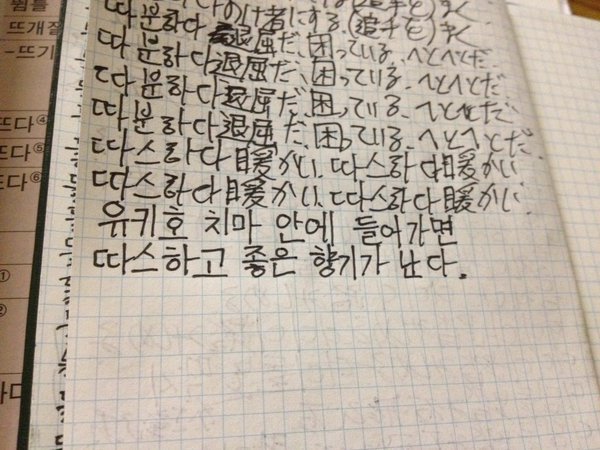 뜀틀
뜨개질
-뜨기
뜨다④
뜨다⑤
뜨다⑥
①
②
のけ者にする.(追手を)まく
따분하다 退屈だ、困っている. へとへとだ.
따분하다 退屈だ、困っている. へとへとだ.
따분하다 退屈だ、困っている. へとへとだ.
따분하다 退屈だ、困っている. へとへとだ.
따스하다 暖かい. 따스하다 暖かい.
따스하다 暖かい. 따스하다 暖かい.
유키호 치마 안에 들어가면
따스하고 좋은 향기가 난다.